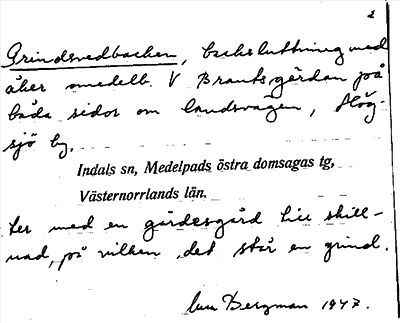 2
Grindsvedbacken, backsluttning med
åker omedelb. V Brantsgärdan på
båda sidor om landsvägen, Hög-
sjö by.
Indals sn, Medelpads östra domsagas tg,
Västernorrlands län.
ter med en gärdesgård till skill-
nad, på vilken det står en grind.
Bergman 1947.